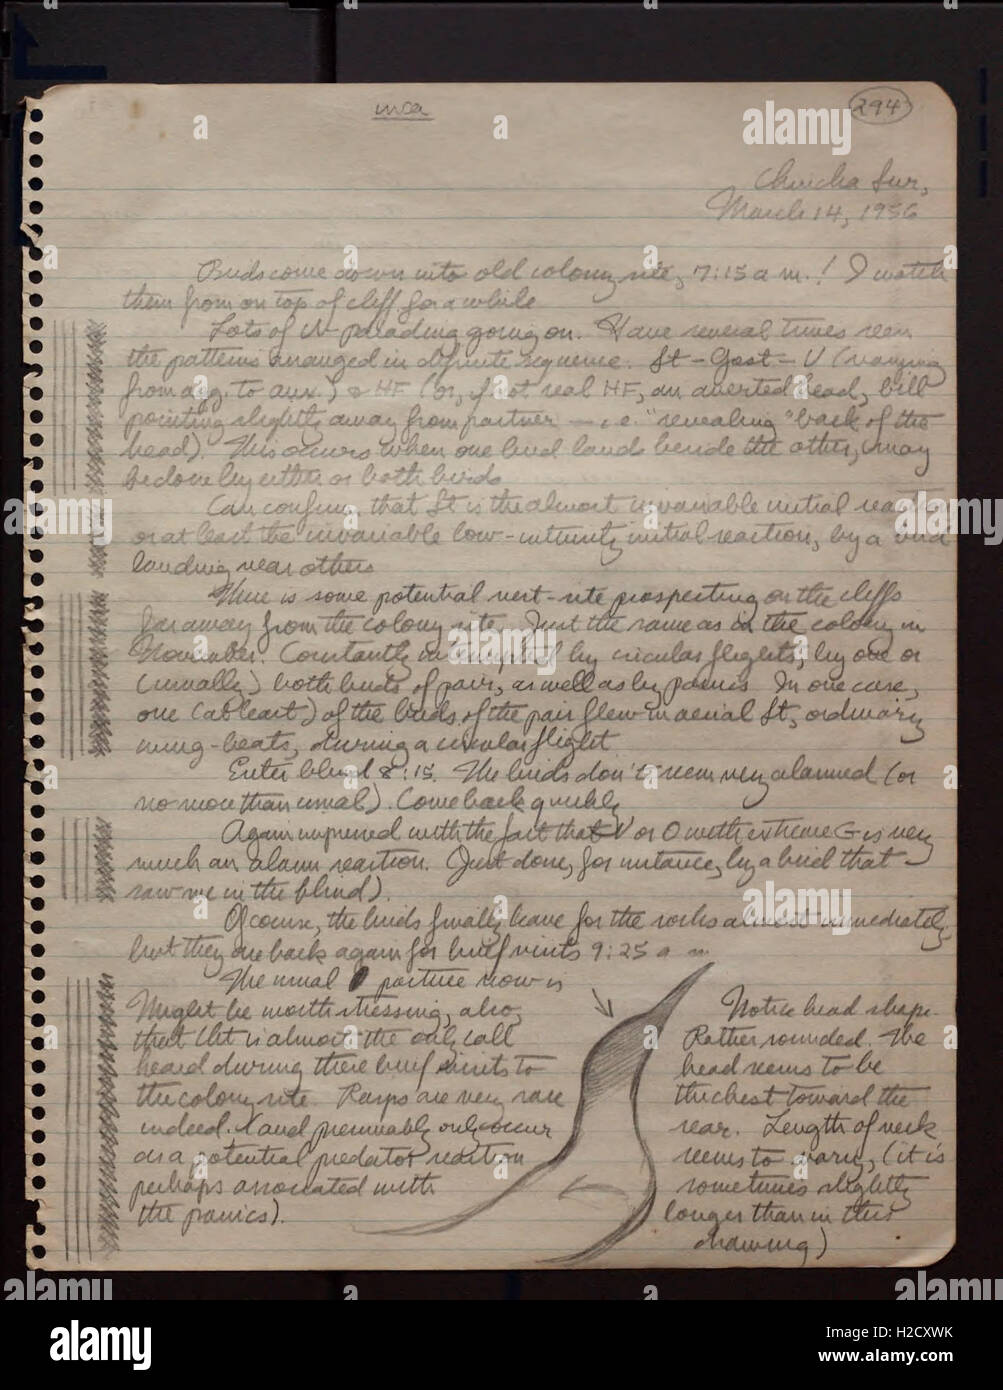 inca
294
Chincha Sur,
March 14, 1956
Birds come down into old colony site, 7:15 a.m.! I watch
them from on top of cliff for a while
Lots of U-parading going on. Have several times seen
the patterns arranged in definite sequence. St - Gast - V (varying
from agg. to anx.) & HF (or, if not real HF, an averted head, bill
pointing slightly away from partner — i.e. "revealing" back of the
head). This occurs when one bird lands beside the other, may
be done by either or both birds
Can confirm that St is the almost invariable initial reaction
or at least the invariable low-intensity initial reaction, by a bird
landing near others
There is some potential nest-site prospecting on the cliffs
far away from the colony site. Just the same as in the colony in
November. Constantly interrupted by circular flights, by one or
(usually) both birds of pair, as well as by panics In one case,
one (at least) of the birds of the pair flew in aerial St, ordinary
wing-beats, during a circular flight
Enter blind 8:15. The birds don't seem very alarmed (or
no more than usual). Come back quickly
Again impressed with the fact that V or O with extreme G is very
much an alarm reaction. Just done, for instance, by a bird that
saw me in the blind).
Of course, the birds finally leave for the rocks almost immediately
but they are back again for brief visits 9:25 a m
The usual posture now is
Might be worth stressing, also,
that is almost the only call
heard during these brief visits to
the colony site. Rasps are very rare
indeed (and presumably only occur
as a potential predator reaction
perhaps associated with
the panics).
Notice head shape.
Rather rounded. The
head seems to be
thickest toward the
rear. Length of neck
seems to vary, (it is
sometimes slightly
longer than in this
drawing)
a
a
alamy
alamy
a
a
alamy
Image ID: H2CXWK
www.alamy.com